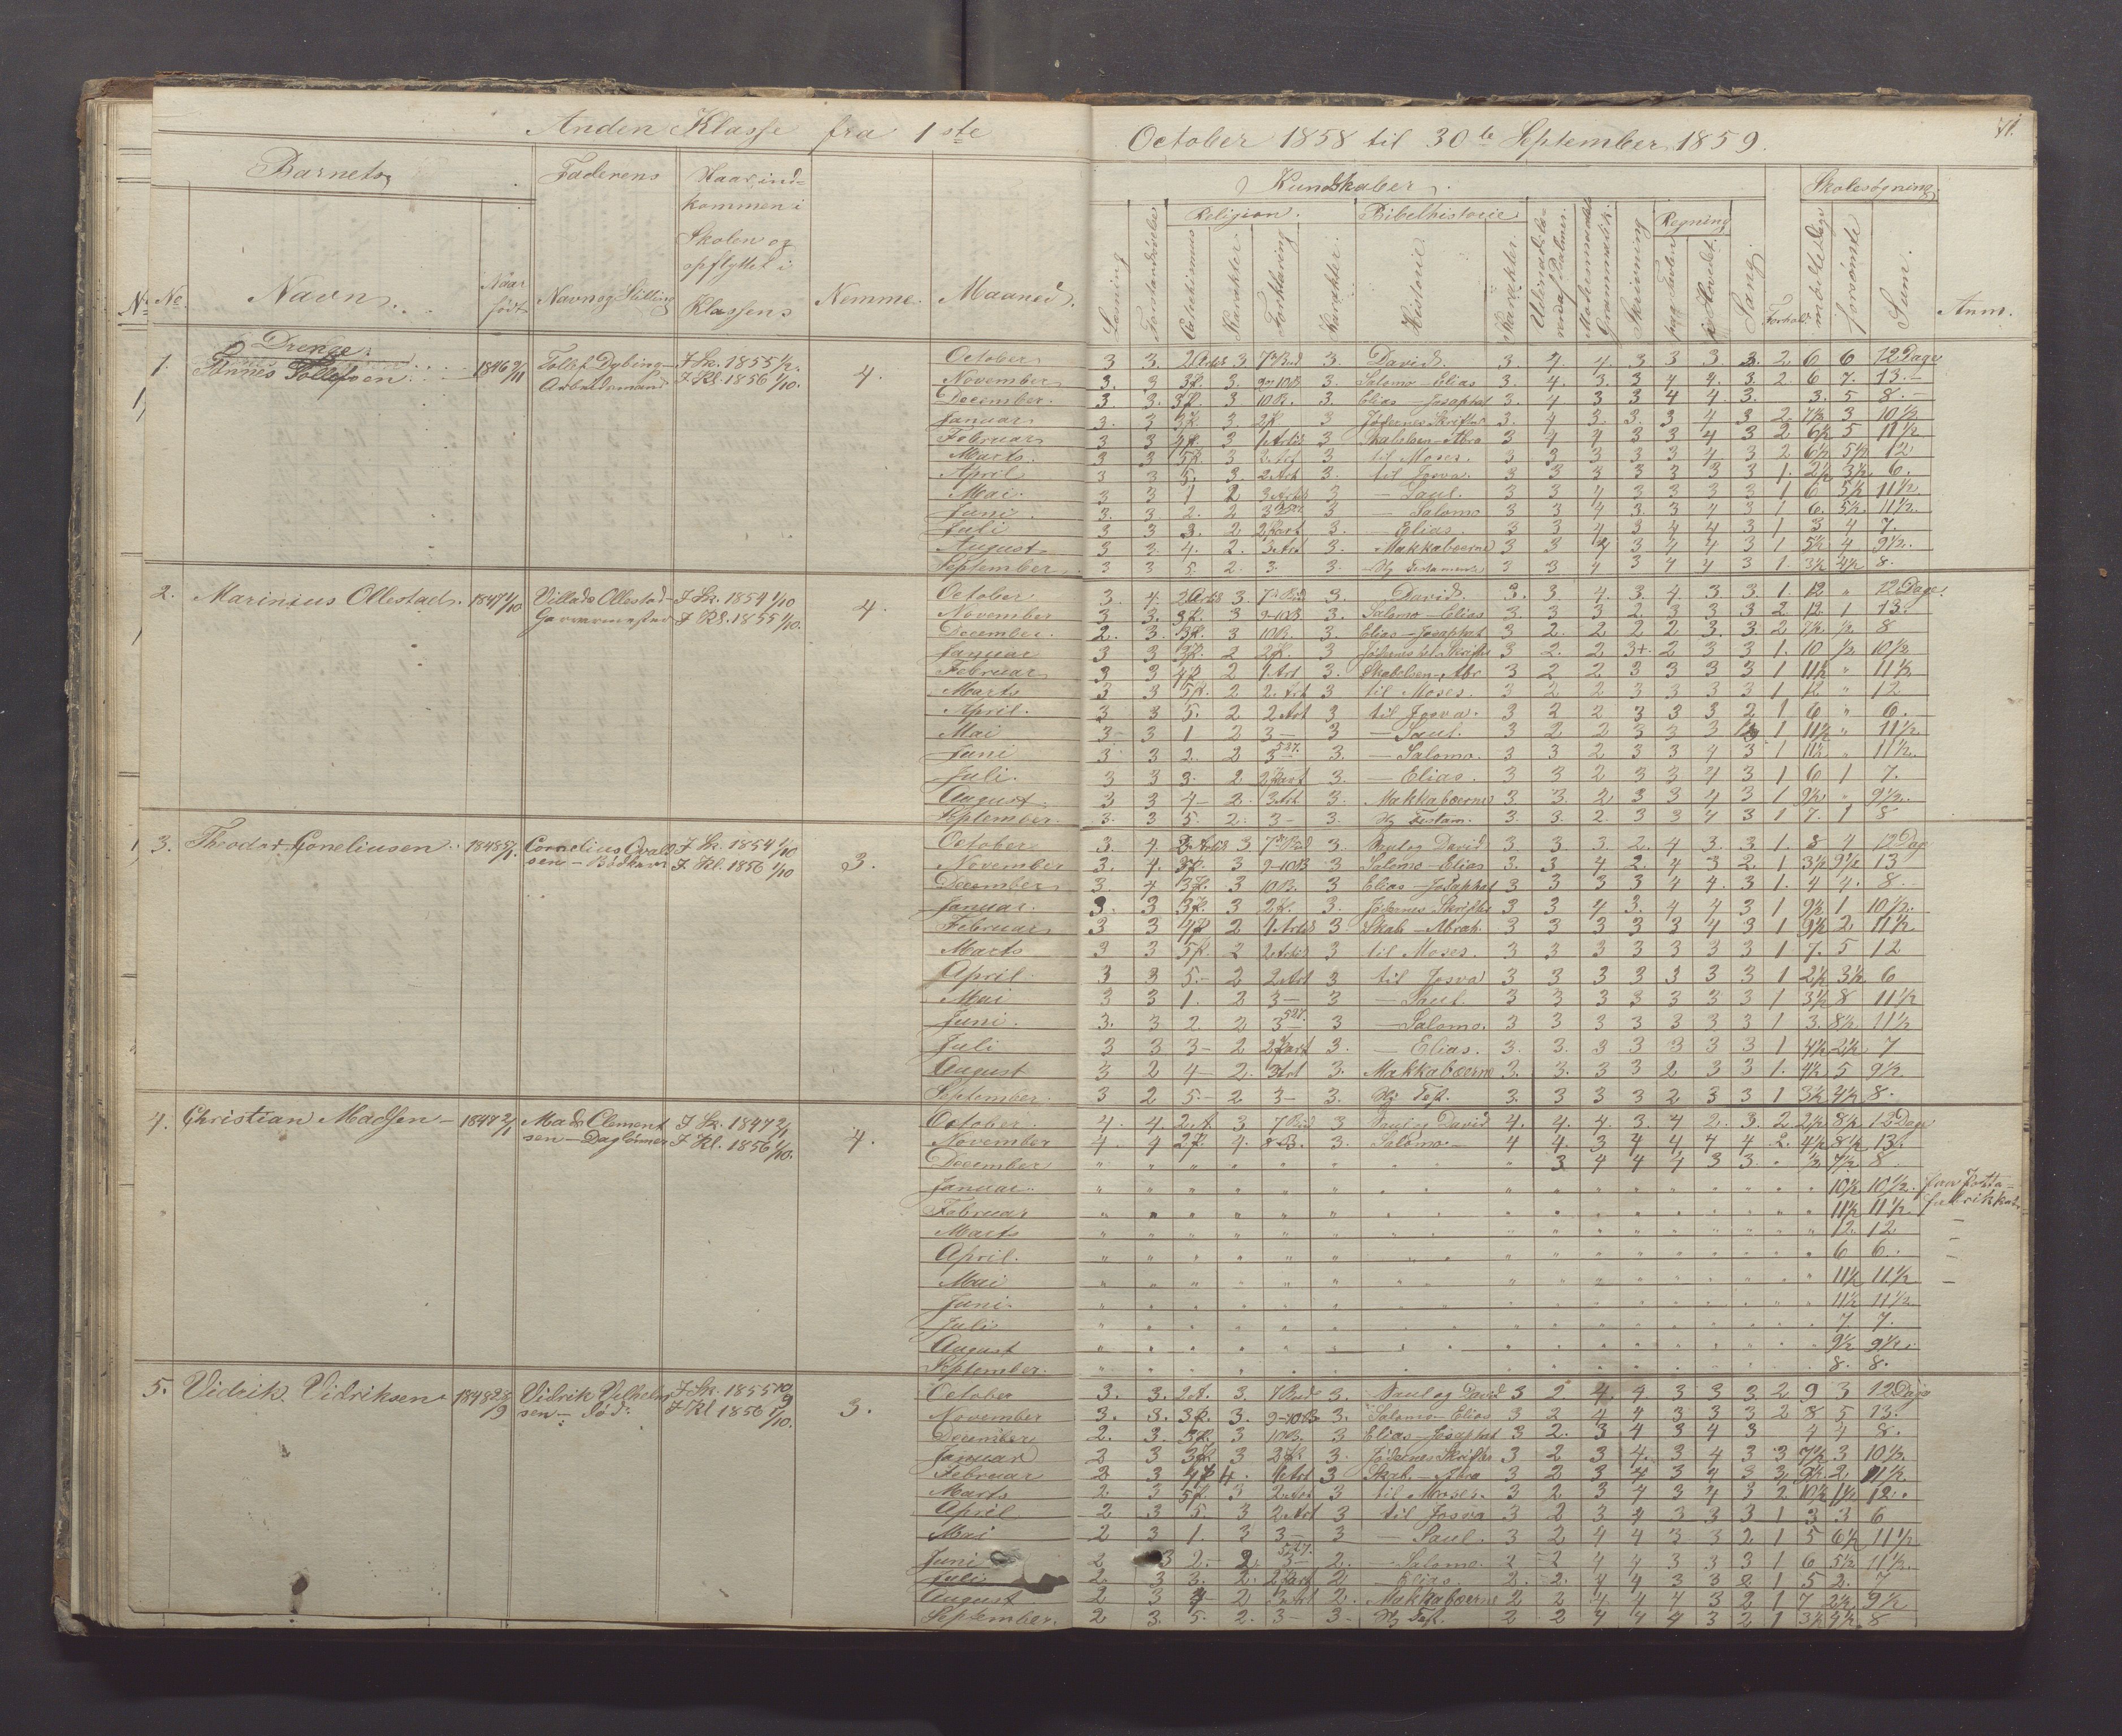 Anden Klasse fra 1ste October 1858 til 30te September 1859.
71.
Barnets
Faderens
Naar ind-
kommen i
Skolen og
opflyttet i
Klassen
No.
Navn
Naar
født
Navn og Stilling
Nemme.
Maaned.
Kundskaber.
Læsning
Religion.
Catechismus
Karakter
Forklaring
Karakter.
Bibelhistorie
Historie
Karakter.
Modersmaalets
Grammatik.
Skrivning
Regning
paa Tavlen
i Hovedet.
Sang.
Forhold.
Skolesøgning
forsømte
Sum.
Anm.
Drenge.
1. Tønnes Tollefsen 1846 Tollef Dybing- I Sk. 1855 1/2. 4.
Arbeidsmand I Kl. 1856 1/10.
October 3 3. 2 Artik 3 7de Bud. 3. David. 3. 4. 4. 3 3 3 3. 2 6 6 12 Dage
November 3. 3 3P. 3. 9-10B 3. Salomo-Elias 3. 4. 3. 3 4 4. 3. 2. 6 7. 13.-
December. 3. 3. 3P. 3 10B. 3. Elias-Josaphat 3. 4 3 3 4 4 3. 3. 5 8.-
Januar 3. 3 3P. 3. 2P. 3 Jødernes Skrifter 3. 4 3. 3. 3 4 3 2 7½ 3 10½
Februar 3 3 4P. 3 1 Artik 3 Skabelsen-Abra 3 4 4 3 3 4 3 2 6½ 5 11½
Marts. 3 3 5P. 3 2 Art 3 til Moses. 3 3 3 3 3 4 3 2 6½ 5½ 12
April 3 3 5. 3. 2 Art 3. til Josva. 3 3 3 3 3 3 3 1. 2½ 3½ 6.
Mai. 3 3 1 2 3 Artik 3 - Saul. 3 3 4 3 3 3 3 1 6 5½ 11½
Juni. 3. 3 2. 2 3 3 - Salomo 3 3 4 3 3 4 3 1 6. 5½ 11½.
Juli 3 3 3. 2 2 Part 3. - Elias. 3 3 4 3 4 4 3 1 3 4 7.
August 3 3. 4. 2. 3 Art 3. - Makkabæerne 3 3 4 3 4 4 3 1 5½ 4 9½.
September. 3 3 5. 2. 3. 3. 3 3 4 3 4 4 3 1. 3½ 4½ 8.
2. Marinius Ollestad. 1847 Villads Ollestad- I Sk. 1854 1/10 4.
Garvermester I Kl. 1855 1/10.
October 3. 4. 2 Artik 3. 7de Bud 3. David. 3. 3. 4. 3. 4. 3 3. 1. 12 " 12 Dage.
November 3 3. 3P. 3 9-10B 3. Salomo-Elias 3. 3. 3 2 3 3 3 2. 12. 1 13.
December. 2. 3. 3P. 3 10B. 3. Elias-Josaphat 3 2. 2 2 2 3. 3. 2 7½ ½ 8
Januar 3 3 3P. 2 2P. 3 3 2. 2 3+. 2 3 3 1. 10 ½ 10½
Februar 3 3 4P 2 1 Art 3. Skabelsen-Abr 3 2 2 3 3 3 3 1 11½ " 11½
Marts 3 3 5P. 2 2. Art 3 til Moses. 3 2 2 3 3 3 3 1 12 " 12
April. 3 3 5. 2 2 Art 3 til Josva. 3 2 2 3 3 3 2 1 6 " 6.
Mai 3 3 1 2 3- 3 - Saul. 3 2 2 3 3 3 1 11½ " 11½
Juni 3 3 2. 2 3 3. - Salomo. 3 3 2 3 3 4 3 1 11½ " 11½
Juli. 3 3 3. 2 2 Part 3. - Elias. 3 3 2 3 3 4 3 1 6 1 7.
August 3 3 4- 2. 3 Art 3. Makkabæerne 3 3. 2 3 3 4 3 1 9½ " 9½.
September. 3. 3 5. 2. 3- 3. Nj Testam. 3. 3. 2. 3 3 4 3 1 7. 1 8
3. Theodor Corneliusen 1848 Cornelius I Sk. 1854 1/10 3.
sen-Bødker I Kl. 1856 1/10
October 3. 4 2 Artik 3 7de Bud 3. Saul og David 3. 3. 3. 2. 4. 3. 3. 1. 8 4 12 Dag
November 3. 4. 3P. 3 9-10B 3 Salomo-Elias 3. 3 4 2 4 3 2. 1 3½ 9½ 13
December 3. 4 3P. 3 10B. 3 Elias-Josaphat 3 3 3 3 4 4. 3 1. 4 4. 8.
Januar. 3. 3 3P. 3 2P. 3. Jødernes Skrifter 3 3 4 3. 4 4 3 1 9½ 1 10½.
Februar 3 3 4P 2 1 Artik 3. Skab-Abrah. 3 3 3 3 3 4 3 1 9½ 2 11½
Marts 3 3 5P. 2 2 Artik 3 til Moses. 3 3 3 3 3 3 3 1 7. 5 12
April. 3 3 5.- 2 2 Art 3 til Josva 3 3 3 3 3 3 3 1 2½ 3½ 6
Mai 3 3 1. 2 3- 3 - Saul. 3 3 3 3 3 3 3 1 3½ 8 11½
Juni. 3. 3 2. 2 3 3 - Salomo. 3 3 3 3 3 3 3 1 3. 8½ 11½
Juli 3 3 3- 2 2 Part 3. - Elias. 3. 3. 3 3 3 3 3 1 4½ 2½ 7
August 3 2 4- 2. 3 Art 3. Makkabæerne 3. 3. 3 3 2 3 3 1. 4½ 5 9½
September 3 2 5.- 2 3- 3. Nj Test. 3. 3 3 3 2 3 3 1 3½ 4½ 8.
4. Christian Madsen- 1847 2/1 Mads Clement I Sk. 1847 2/1 4.
sen-Daglønner I Kl. 1856 1/10.
October. 4. 4. 2.A. 3 7 Bud 3 Saul og David 4. 4. 4. 3. 4 2. 3. 2 2½ 8½ 12 Dage
November 4. 4 2P. 4. 8B. 3. Salomo- 4 4. 3 4 4 4 4 2. 4½ 8½ 13.
December " " " " " " " " 3 4 4 4 3 3. " ½ 7½ 8
Januar. " " " " " " " " " " " " " " " " 10½ 10½.
Februar " " " " " " " " " " " " " " " " 11½ 11½.
Marts " " " " " " " " " " " " " " " " 12. 12 -
April. " " " " " " " " " " " " " " " " 6 6. -
Mai " " " " " " " " " " " " " " " " 11½ 11½ -
Juni. " " " " " " " " " " " " " " " " 11½ 11½.
Juli " " " " " " " " " " " " " " " " 7. 7.
August " " " " " " " " " " " " " " " " 9½ 9½.
September. " " " " " " " " " " " " " " " " 8. 8.
5. Vidrik Vidriksen 1848 Vidrik Vilhelm I Sk. 1855 3.
sen- Død. I Kl 1856 1/10.
October 3. 3. 2.A. 3. 7 Bud 3. Saul og David 3 2 4. 4 3 3 3 2 9 3 12 Dage
November 3. 3. 3P. 3. 9-10B 3. Salomo-Elias 3 2 4 4 3 3 3 2 8 5 13.
December 2. 3. 3P. 3 10B. 3 Elias-Josaphat 3 2. 3 4 3 4 3 4 4 8.
Januar 2 3 3P. 3 2P. 3. Jødernes Skrifter 3 2 3 4. 3 4 3 3 7½ 3 10½
Februar 2 3 4P 4. 1 Art 3 Skab.-Abra 3 2 3 4 3 4 3 3 9½ 2 11½
Marts 2 3 5P. 3 2 Art 3 til Moses. 3 2 3 4 3 4 3 2 10½ 1½ 12.
April 2 3 5. 3 2 Art 3 til Josva 3 2 3 4 3 3 3 1 3 3 6
Mai 2 3 1. 3 3- 3 - Saul. 3 2 4 4 3 3 2 1 5 6½ 11½
Juni 2 3 2.- 2 3 2. - Salomo. 2 2 4 4 3 3 3 1 6 5½ 11½.
Juli 2. 3 3. 2. 2 Part 2 - Elias. 2. 2. 4 4 3 3 2 1 5 2. 7
August 2 3 4- 2 3 Art 2. Makkabæerne 2 2 4 4 4 3 2 1 7 2½ 9½
September. 2 3. 5. 2. 3- 3- Nj Test. 2 2 4 4 4 3 2 1 3½ 4½ 8